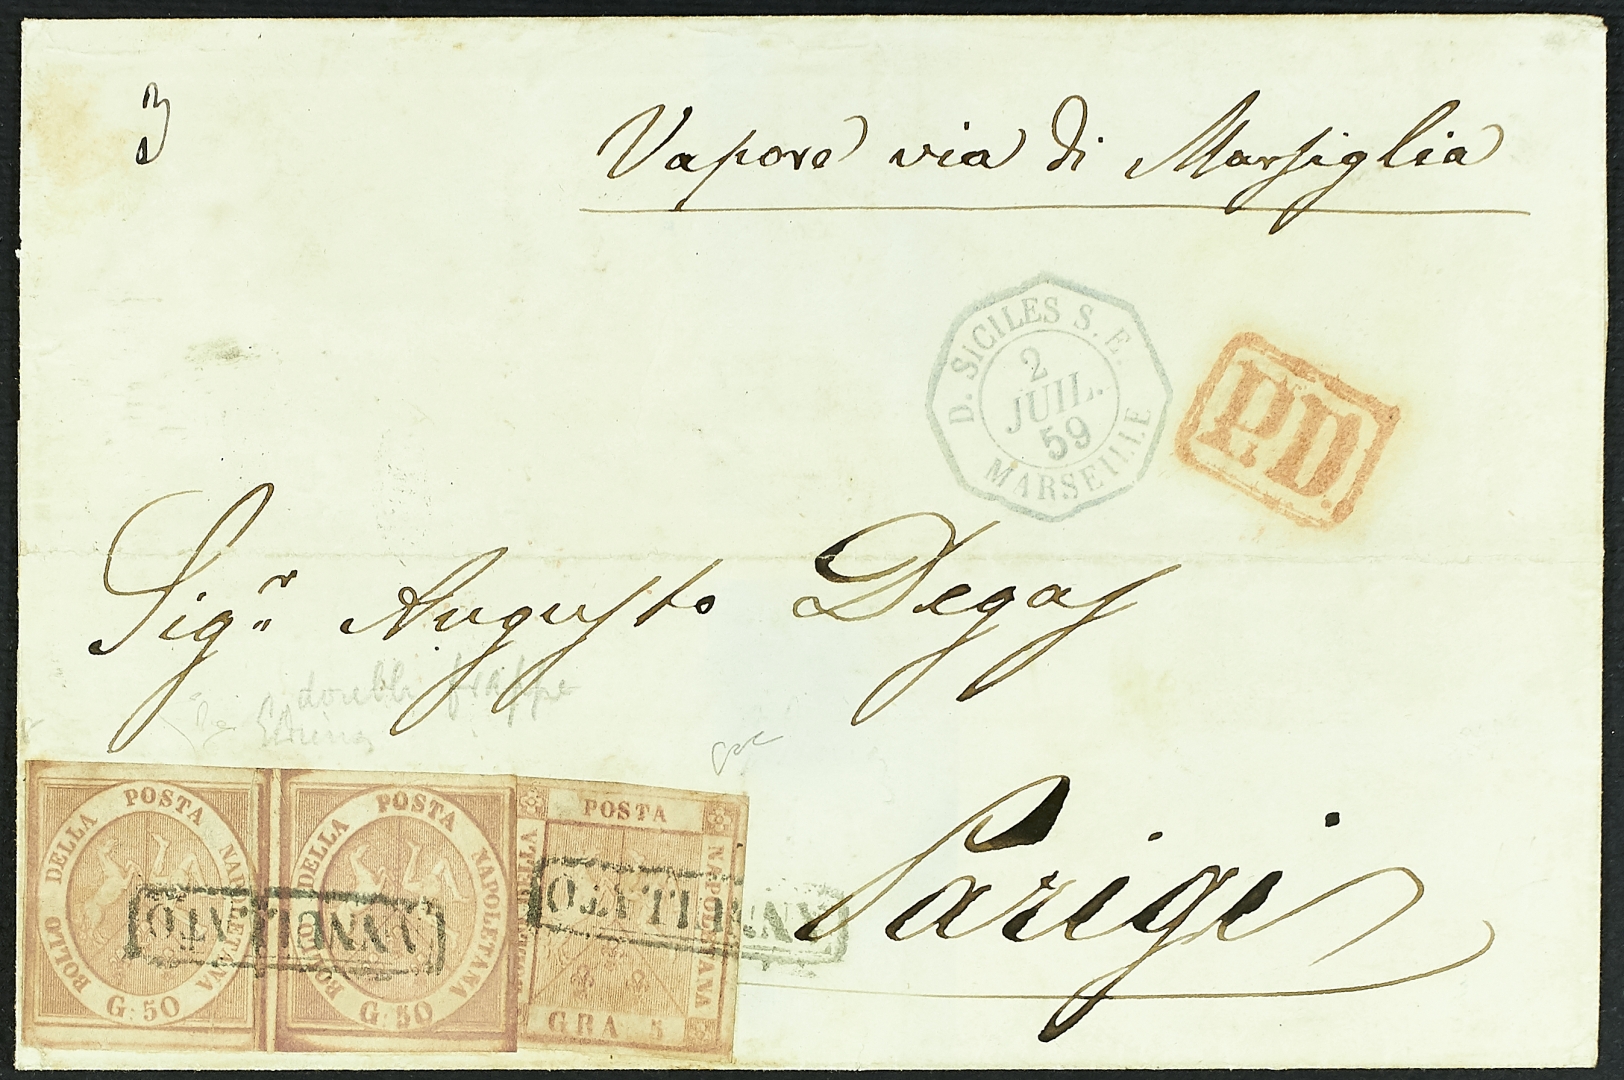 3
Vapore via di Marsiglia
D. SICILES S. E.
2
JUIL.
59
MARSEILLE
P.D.
Sigr. Augusto Degas
double frappe
Parigi
BOLLO DELLA POSTA NAPOLETANA
G: 50
BOLLO DELLA POSTA NAPOLETANA
G: 50
POSTA
NAPOLETANA
GRA 5
ANNULLATO
ANNULLATO